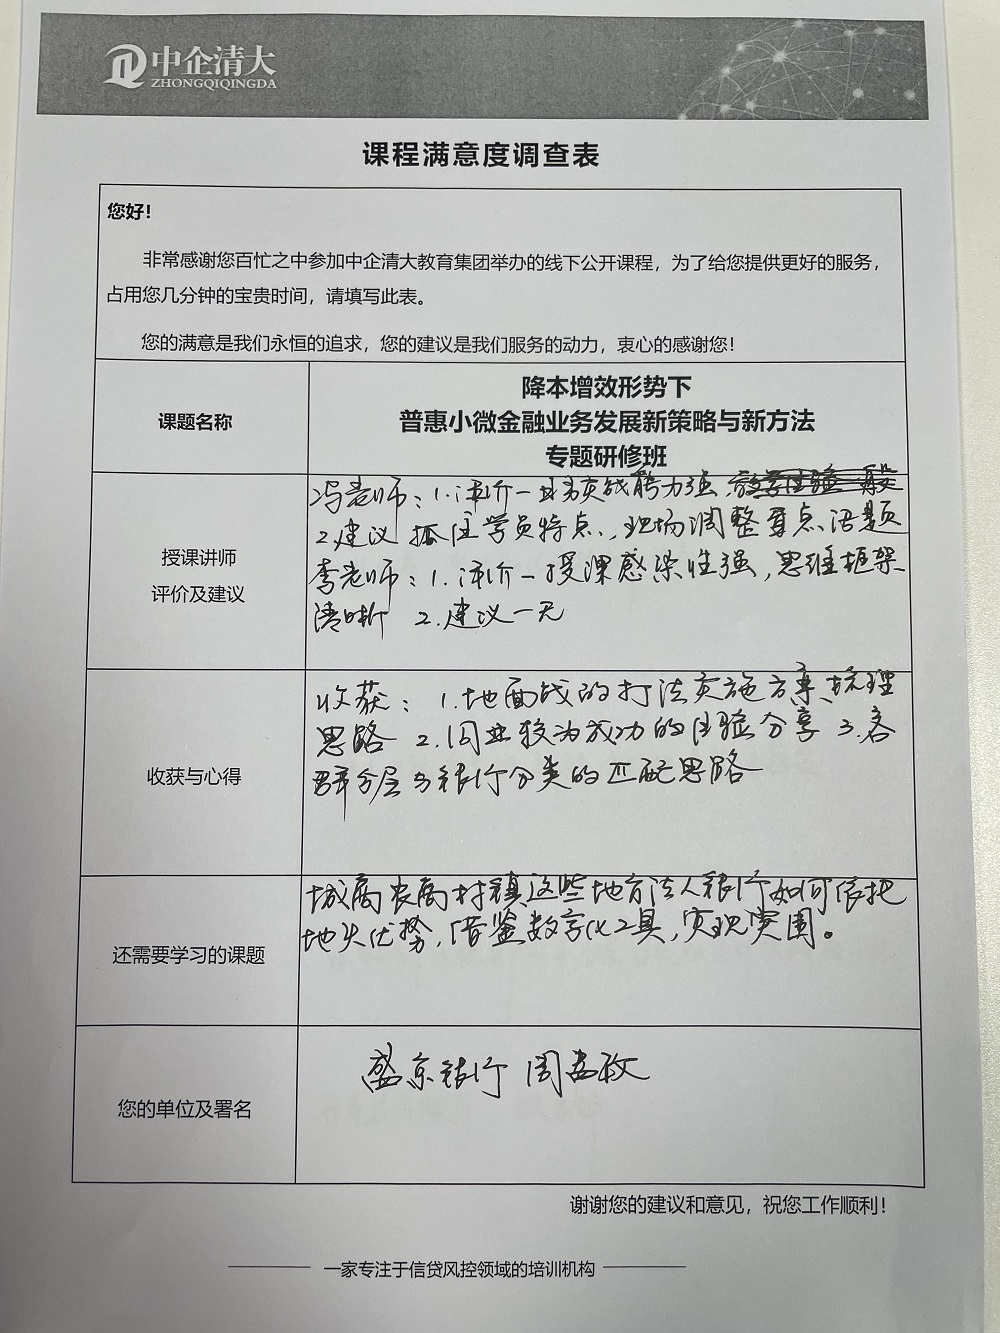 中企清大
ZHONGQIQINGDA
课程满意度调查表
您好！
非常感谢您百忙之中参加中企清大教育集团举办的线下公开课程，为了给您提供更好的服务，
占用您几分钟的宝贵时间，请填写此表。
您的满意是我们永恒的追求，您的建议是我们服务的动力，衷心的感谢您！
课题名称
降本增效形势下
普惠小微金融业务发展新策略与新方法
专题研修班
授课讲师
评价及建议
冯老师：1.评价—业务实战能力强，
2.建议 抓住学员特点、现场调整重点话题
李老师：1.评价—授课感染性强，思维框架
清晰 2.建议—无
收获与心得
收获：1.地面战的打法实施方案、梳理
思路 2.同业较为成功的经验分享 3.客
群分层与银行分类的匹配思路
还需要学习的课题
城商农商村镇这些地方法人银行如何依托
地头优势，借鉴数字化工具，实现突围。
您的单位及署名
盛京银行 周
谢谢您的建议和意见，祝您工作顺利！
一家专注于信贷风控领域的培训机构